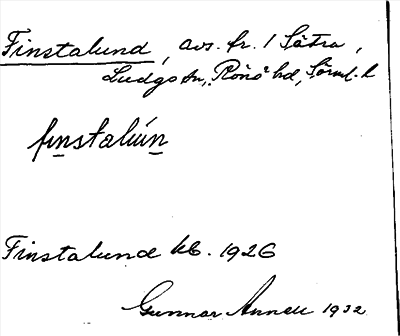 Finstalund, avs. fr. 1 Sätra,
Ludgo sn, Rönö hd, Sörml. l.
finstalún
Finstalund kb. 1926
Gunnar Annell 1932